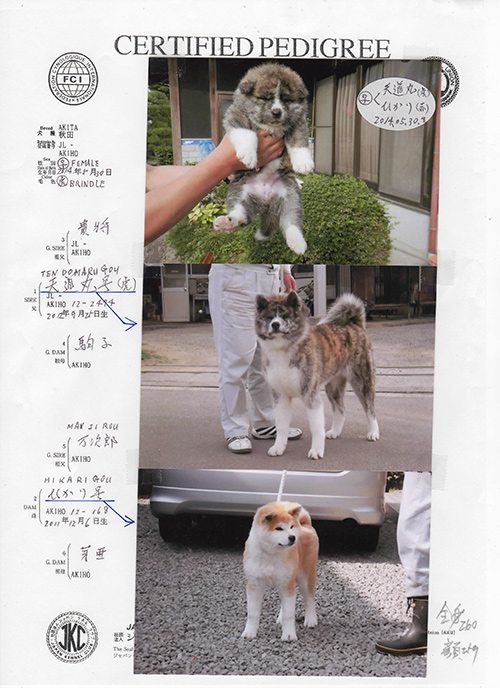 CERTIFIED PEDIGREE
FEDERATION CYNOLOGIQUE INTERNATIONALE
FCI
天道丸(虎)
♀ ひかり(赤)
2014.05.30生
Breed AKITA
犬種 秋田
JL -
AKIHO
Sex ♀ FEMALE
性別
2014年5月30日
Color 虎 BRINDLE
毛色
3 貴将
G. SIRE JL -
祖父 AKIHO
TEN DO MARU GOU
1 天道丸号(虎)
SIRE JL -
父 AKIHO 12-2494
2012年9月25日生
4 駒子
G. DAM
祖母 AKIHO
MAN JI ROU
5 万次郎
G. SIRE
祖父 AKIHO
HIKARI GOU
2 ひかり号
DAM AKIHO 12-168
母 2011年12月6日生
6 芽亜
G. DAM
祖母 AKIHO
JKC
JAPAN KENNEL CLUB
JA
社団法人 ジ
The Seal
ジャパン
260
259